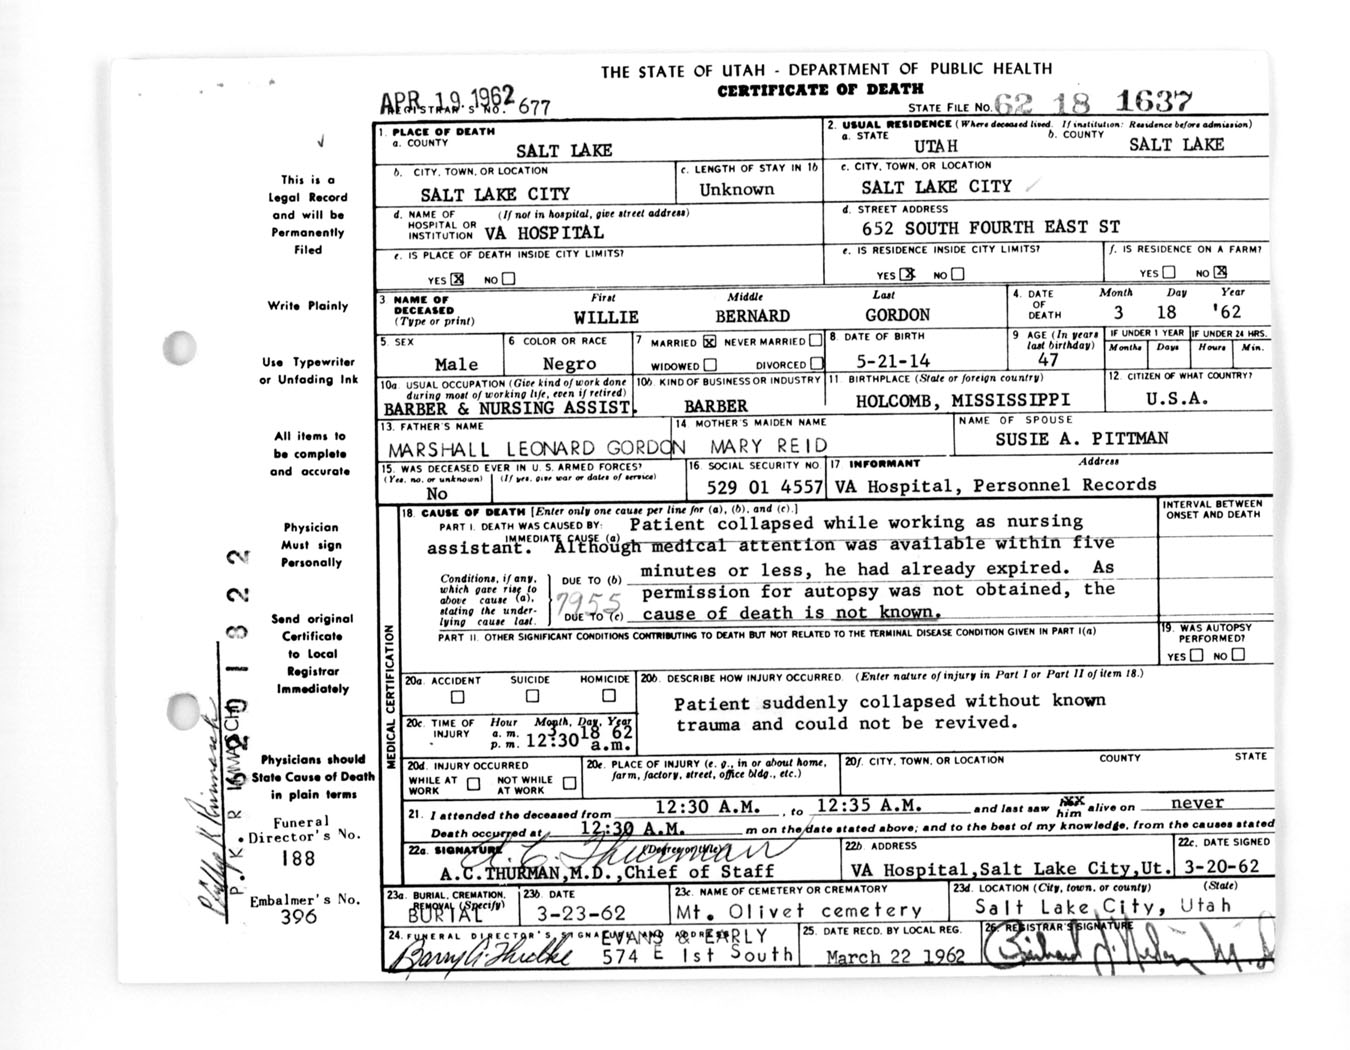 THE STATE OF UTAH - DEPARTMENT OF PUBLIC HEALTH
CERTIFICATE OF DEATH
APR 19 1962
REGISTRAR'S NO. 677
STATE FILE NO. 62 18 1637
1. PLACE OF DEATH
a. COUNTY
SALT LAKE
2. USUAL RESIDENCE (Where deceased lived. If institution: Residence before admission)
a. STATE
UTAH
b. COUNTY
SALT LAKE
b. CITY, TOWN, OR LOCATION
SALT LAKE CITY
c. LENGTH OF STAY IN 1b
Unknown
c. CITY, TOWN, OR LOCATION
SALT LAKE CITY
d. NAME OF HOSPITAL OR INSTITUTION
(If not in hospital, give street address)
VA HOSPITAL
d. STREET ADDRESS
652 SOUTH FOURTH EAST ST
e. IS PLACE OF DEATH INSIDE CITY LIMITS?
YES X NO
e. IS RESIDENCE INSIDE CITY LIMITS?
YES X NO
f. IS RESIDENCE ON A FARM?
YES NO X
3 NAME OF DECEASED
(Type or print)
First Middle Last
WILLIE BERNARD GORDON
4. DATE OF DEATH
Month Day Year
3 18 '62
5. SEX
Male
6 COLOR OR RACE
Negro
7 MARRIED X NEVER MARRIED
WIDOWED DIVORCED
8 DATE OF BIRTH
5-21-14
9 AGE (In years last birthday)
47
IF UNDER 1 YEAR
Months Days
IF UNDER 24 HRS.
Hours Min.
10a. USUAL OCCUPATION (Give kind of work done during most of working life, even if retired)
BARBER & NURSING ASSIST.
10b. KIND OF BUSINESS OR INDUSTRY
BARBER
11 BIRTHPLACE (State or foreign country)
HOLCOMB, MISSISSIPPI
12. CITIZEN OF WHAT COUNTRY?
U.S.A.
13. FATHER'S NAME
MARSHALL LEONARD GORDON
14 MOTHER'S MAIDEN NAME
MARY REID
NAME OF SPOUSE
SUSIE A. PITTMAN
15. WAS DECEASED EVER IN U.S. ARMED FORCES?
(Yes, no, or unknown) (If yes, give war or dates of service)
No
16. SOCIAL SECURITY NO.
529 01 4557
17 INFORMANT Address
VA Hospital, Personnel Records
18. CAUSE OF DEATH [Enter only one cause per line for (a), (b), and (c).]
INTERVAL BETWEEN ONSET AND DEATH
PART I. DEATH WAS CAUSED BY:
IMMEDIATE CAUSE (a)
Patient collapsed while working as nursing
assistant. Although medical attention was available within five
minutes or less, he had already expired. As
permission for autopsy was not obtained, the
cause of death is not known.
Conditions, if any, which gave rise to above cause (a), stating the underlying cause last.
DUE TO (b)
7955
DUE TO (c)
PART II. OTHER SIGNIFICANT CONDITIONS CONTRIBUTING TO DEATH BUT NOT RELATED TO THE TERMINAL DISEASE CONDITION GIVEN IN PART I(a)
19. WAS AUTOPSY PERFORMED?
YES NO
MEDICAL CERTIFICATION
20a. ACCIDENT SUICIDE HOMICIDE
20b. DESCRIBE HOW INJURY OCCURRED. (Enter nature of injury in Part I or Part II of item 18.)
Patient suddenly collapsed without known
trauma and could not be revived.
20c. TIME OF INJURY
Hour Month, Day, Year
a. m.
p. m.
3 18 62
12:30 a.m.
20d. INJURY OCCURRED
WHILE AT WORK NOT WHILE AT WORK
20e. PLACE OF INJURY (e. g., in or about home, farm, factory, street, office bldg., etc.)
20f. CITY, TOWN, OR LOCATION COUNTY STATE
21. I attended the deceased from 12:30 A.M. , to 12:35 A.M. and last saw him alive on never
Death occurred at 12:30 A.M. m on the date stated above; and to the best of my knowledge, from the causes stated
22a. SIGNATURE (Degree or title)
A. C. Thurman
A.C.THURMAN,M.D.,Chief of Staff
22b. ADDRESS
VA Hospital,Salt Lake City,Ut.
22c. DATE SIGNED
3-20-62
23a. BURIAL, CREMATION, REMOVAL (Specify)
BURIAL
23b. DATE
3-23-62
23c. NAME OF CEMETERY OR CREMATORY
Mt. Olivet cemetery
23d. LOCATION (City, town, or county) (State)
Salt Lake City, Utah
24. FUNERAL DIRECTOR'S SIGNATURE AND ADDRESS
EVANS & EARLY
574 E 1st South
25. DATE RECD. BY LOCAL REG.
March 22 1962
26. REGISTRAR'S SIGNATURE
This is a
Legal Record
and will be
Permanently
Filed
Write Plainly
Use Typewriter
or Unfading Ink
All items to
be complete
and accurate
Physician
Must sign
Personally
Send original
Certificate
to Local
Registrar
Immediately
Physicians should
State Cause of Death
in plain terms
Funeral
Director's No.
188
Embalmer's No.
396